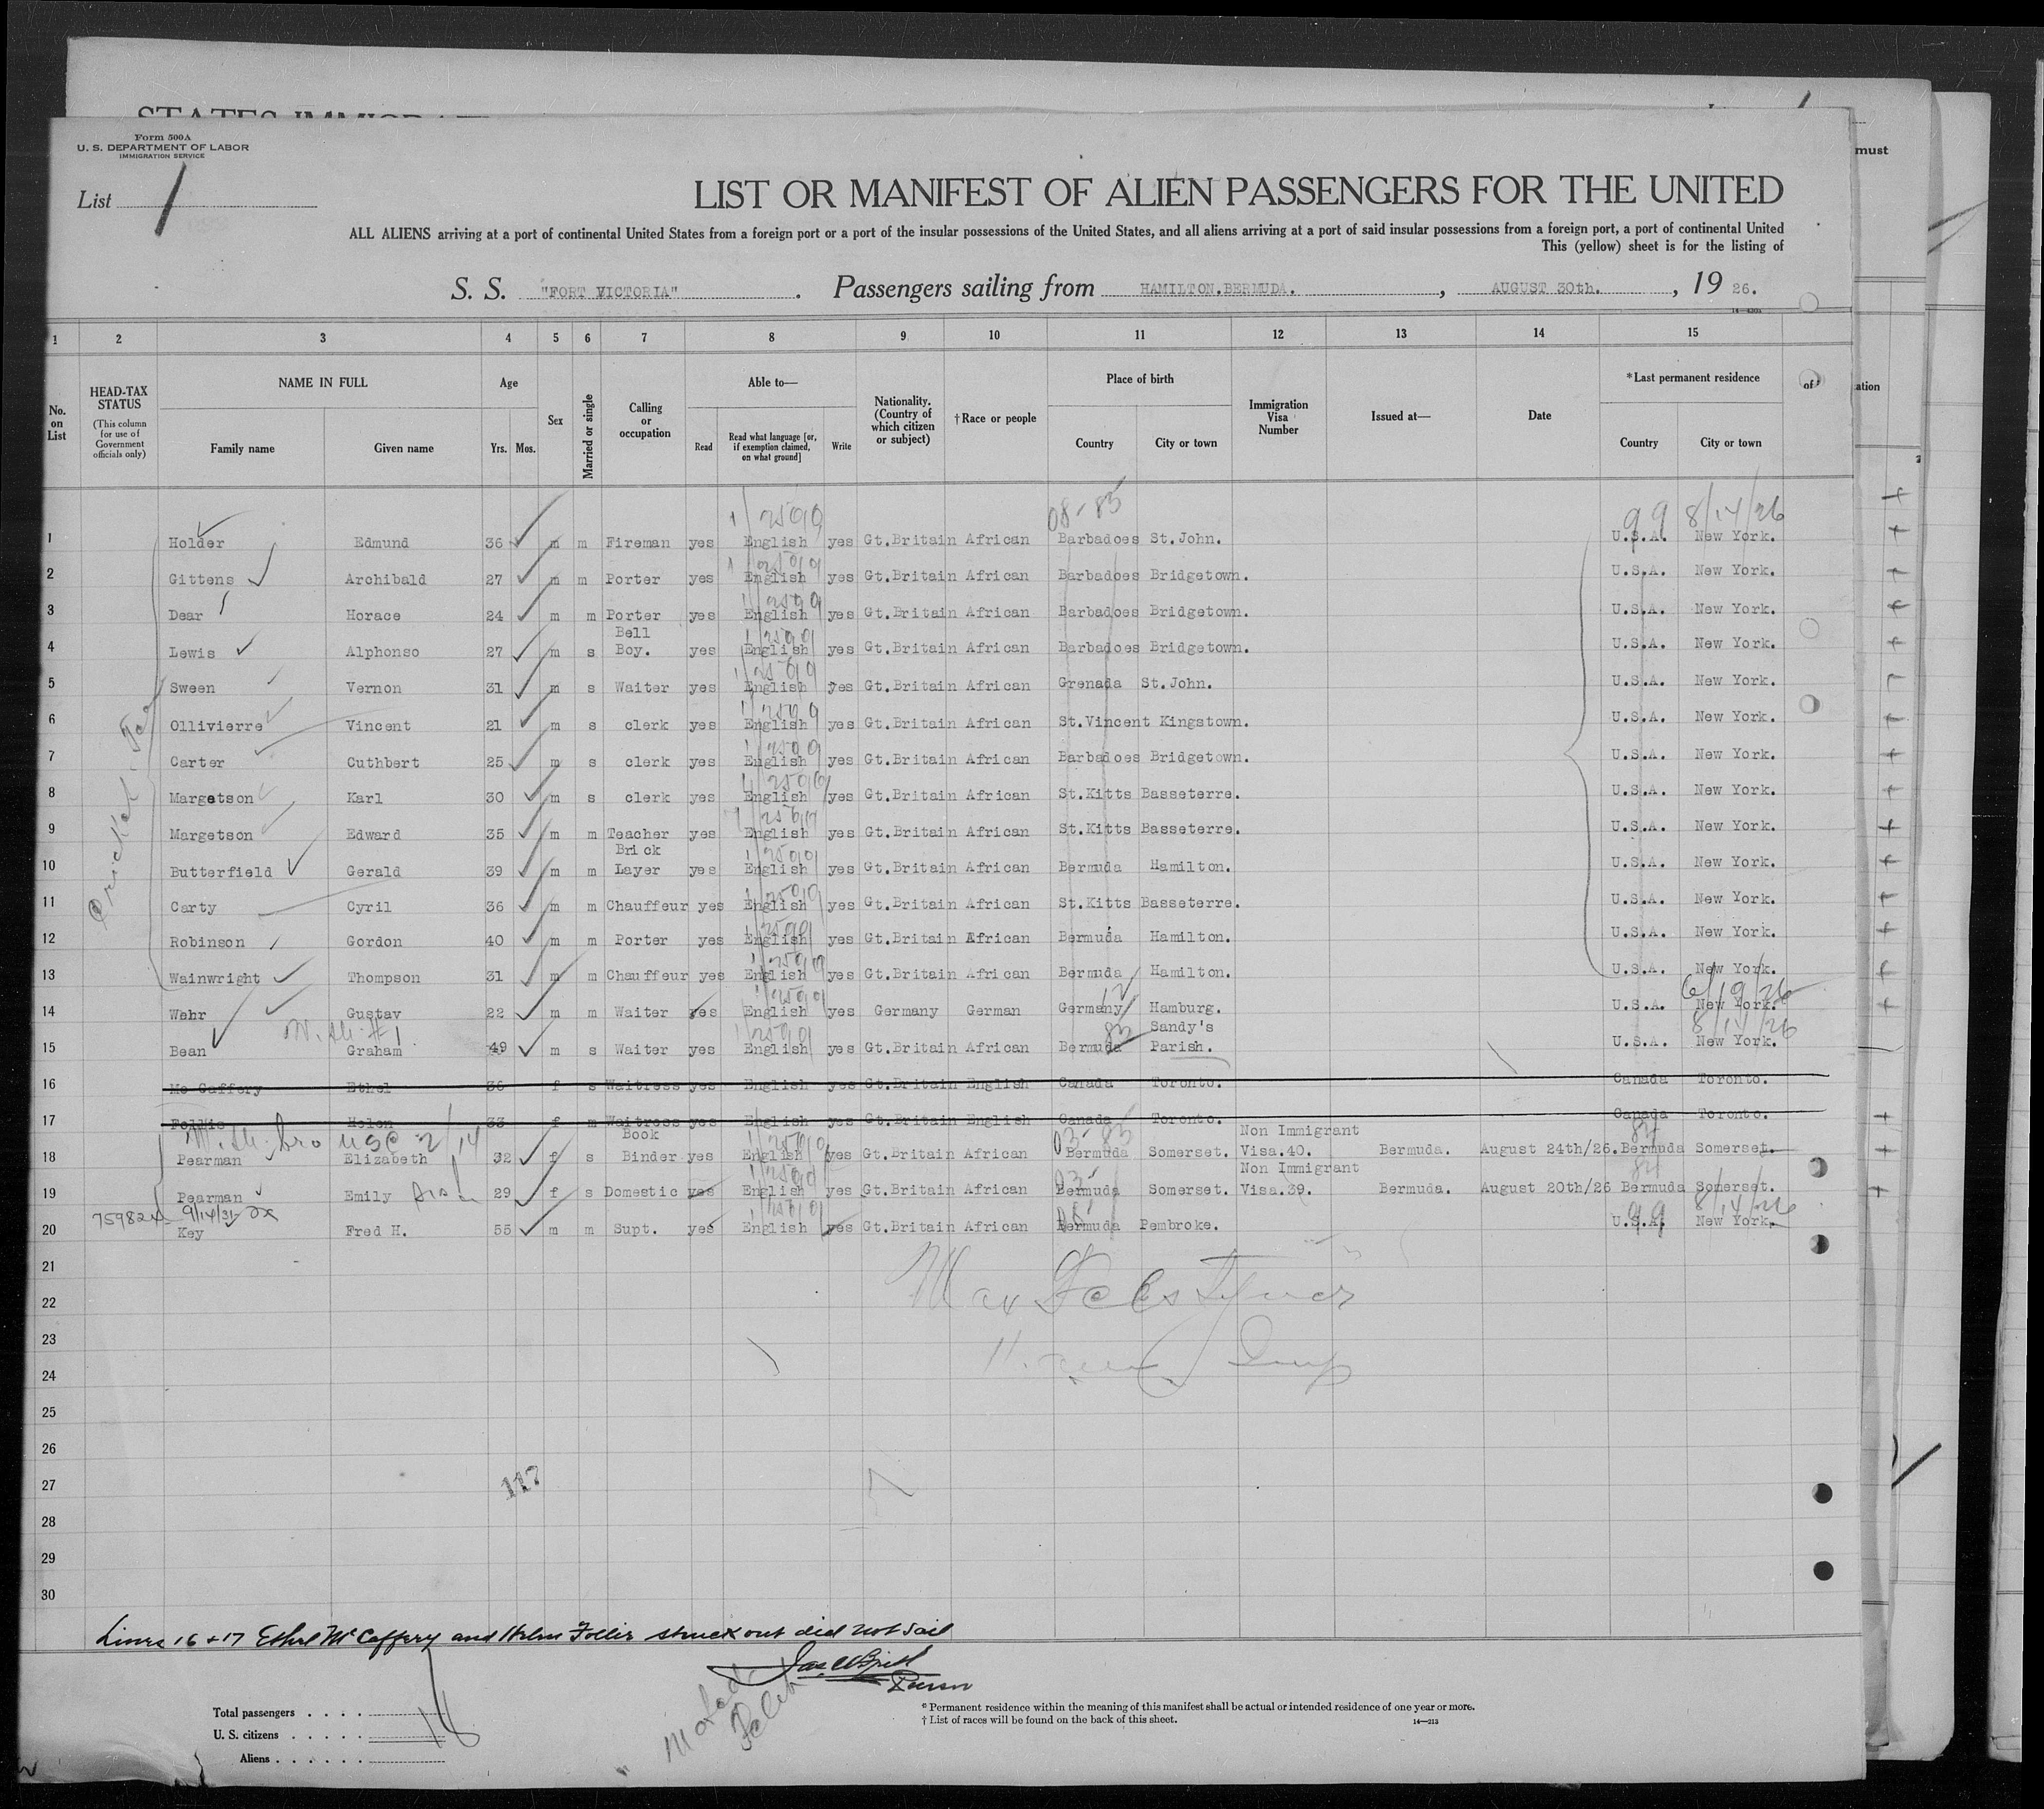 STATES IMMIGRAT
must
Form 500A
U. S. DEPARTMENT OF LABOR
IMMIGRATION SERVICE
List 1
LIST OR MANIFEST OF ALIEN PASSENGERS FOR THE UNITED
ALL ALIENS arriving at a port of continental United States from a foreign port or a port of the insular possessions of the United States, and all aliens arriving at a port of said insular possessions from a foreign port, a port of continental United
This (yellow) sheet is for the listing of
S. S. "FORT VICTORIA" . Passengers sailing from HAMILTON.BERMUDA. , AUGUST 30th. , 19 26.
1 2 3 4 5 6 7 8 9 10 11 12 13 14 15
No. on List
HEAD-TAX STATUS
(This column for use of Government officials only)
NAME IN FULL
Family name Given name
Age
Yrs. Mos.
Sex
Married or single
Calling or occupation
Able to—
Read Read what language [or, if exemption claimed, on what ground] Write
Nationality. (Country of which citizen or subject)
†Race or people
Place of birth
Country City or town
Immigration Visa Number
Issued at—
Date
*Last permanent residence
Country City or town
of
ation
08-83 99 8/14/26
1 Holder Edmund 36 m m Fireman yes English yes Gt.Britain African Barbadoes St.John. U.S.A. New York.
2 Gittens Archibald 27 m m Porter yes English yes Gt.Britain African Barbadoes Bridgetown. U.S.A. New York.
3 Dear Horace 24 m m Porter yes English yes Gt.Britain African Barbadoes Bridgetown. U.S.A. New York.
4 Lewis Alphonso 27 m s Bell Boy. yes English yes Gt.Britain African Barbadoes Bridgetown. U.S.A. New York.
5 Sween Vernon 31 m s Waiter yes English yes Gt.Britain African Grenada St.John. U.S.A. New York.
6 Ollivierre Vincent 21 m s clerk yes English yes Gt.Britain African St.Vincent Kingstown. U.S.A. New York.
7 Carter Cuthbert 25 m s clerk yes English yes Gt.Britain African Barbadoes Bridgetown. U.S.A. New York.
8 Margetson Karl 30 m s clerk yes English yes Gt.Britain African St.Kitts Basseterre. U.S.A. New York.
9 Margetson Edward 35 m m Teacher yes English yes Gt.Britain African St.Kitts Basseterre. U.S.A. New York.
10 Butterfield Gerald 39 m m Brick Layer yes English yes Gt.Britain African Bermuda Hamilton. U.S.A. New York.
11 Carty Cyril 36 m m Chauffeur yes English yes Gt.Britain African St.Kitts Basseterre. U.S.A. New York.
12 Robinson Gordon 40 m m Porter yes English yes Gt.Britain African Bermuda Hamilton. U.S.A. New York.
13 Wainwright Thompson 31 m m Chauffeur yes English yes Gt.Britain African Bermuda Hamilton. U.S.A. New York.
6/19/26
14 Wehr Gustav 22 m m Waiter yes English yes Germany German Germany Hamburg. U.S.A. New York.
8/14/26
15 Bean Graham 49 m s Waiter yes English yes Gt.Britain African Bermuda Sandy's Parish. U.S.A. New York.
16 Mc Caffery Ethel 36 f s Waitress yes English yes Gt.Britain English Canada Toronto. Canada Toronto.
17 Follis Helen 33 f m Waitress yes English yes Gt.Britain English Canada Toronto. Canada Toronto.
18 Pearman Elizabeth 32 f s Book Binder yes English yes Gt.Britain African Bermuda Somerset. Non Immigrant Visa.40. Bermuda. August 24th/26. Bermuda Somerset.
19 Pearman Emily 29 f s Domestic yes English yes Gt.Britain African Bermuda Somerset. Non Immigrant Visa.39. Bermuda. August 20th/26 Bermuda Somerset.
9/14/31 99 8/14/26
20 Key Fred H. 55 m m Supt. yes English yes Gt.Britain African Bermuda Pembroke. U.S.A. New York.
21
22
23
24
25
26
27
28
29
30
117
Lines 16 + 17 Ethel McCaffery and Helen Follis struck out did not sail
Purser
Total passengers . . . .
U. S. citizens . . . . .
Aliens . . . . . .
* Permanent residence within the meaning of this manifest shall be actual or intended residence of one year or more.
† List of races will be found on the back of this sheet.
14—213